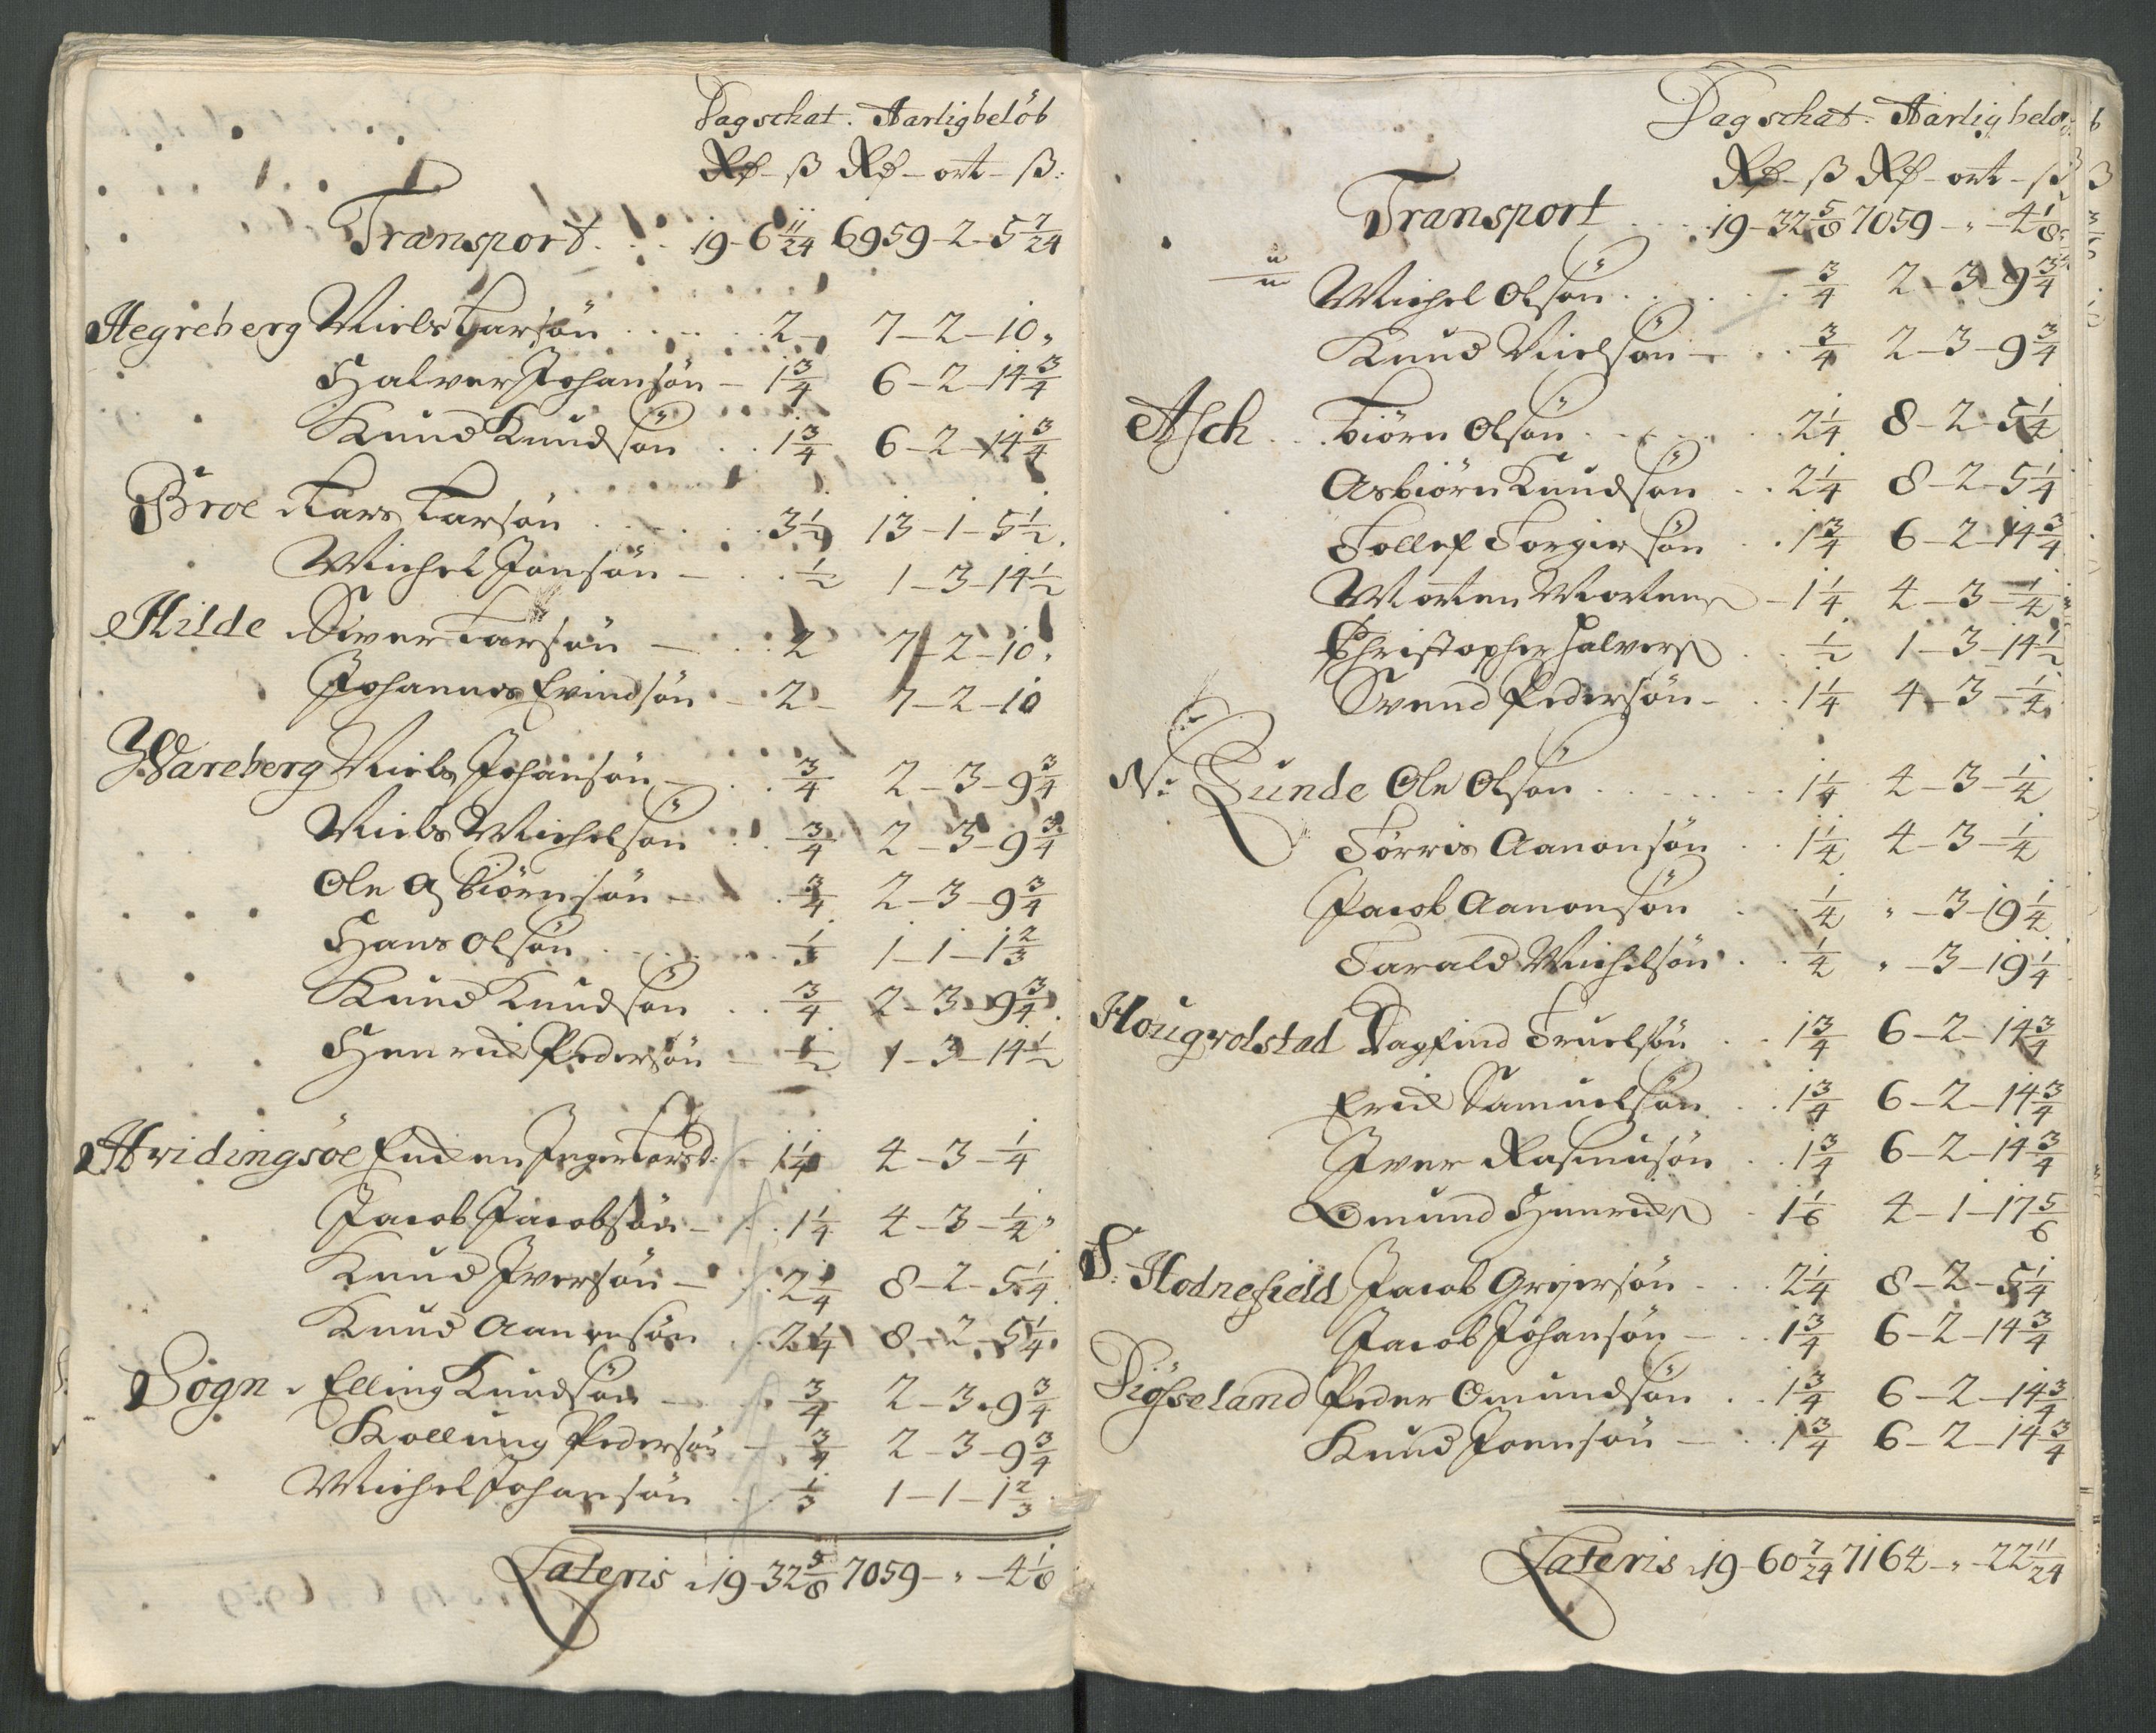 Dagschat. Aarligbelöb
Rd - ß Rd - ort - ß:
Transport. . . 19 - 6 11/24 6959 - 2 - 5 7/24
Hegreberg Niels Larsön . . . . 2 - 7 - 2 - 10 "
Halver Johansön - 1 3/4 6 - 2 - 14 3/4
Knud Knudsön . . 1 3/4 6 - 2 - 14 3/4
Broe Lars Larsön . . . . . 3 1/2 13 - 1 - 5 1/2.
Michel Jonsön - . . 1/2 1 - 3 - 14 1/2
Hilde Siver Larsön — . . 2 7 - 2 - 10 "
Johannes Evindsön . - 2 - 7 - 2 - 10
Wareberg Niels Johansön - . . 3/4 2 - 3 - 9 3/4
Niels Michelsön . . 3/4 2 - 3 - 9 3/4
Ole Asbiörnsön - . 3/4 2 - 3 - 9 3/4
Hans Olsön . . . . . 1/3 1 - 1 - 1 2/3
Knud Knudsön . . 3/4 2 - 3 - 9 3/4.
Henrich Pedersön - 1/2 1 - 3 - 14 1/2
Hvidingsöe Enchen Inger Larsd: - 1 1/4 4 - 3 - 1/4
Jacob Jacobsön - . . 1 1/4 4 - 3 - 1/4 "
Knud Iversön - . 2 1/4 8 - 2 - 5 1/4
Knud Aanensön . . 2 1/4 8 - 2 - 5 1/4
Sogn Elling Knudsön — . . 3/4 2 - 3 - 9 3/4
Kollung Pedersön - 3/4 2 - 3 - 9 3/4
Michel Johansön . . 1/3 1 - 1 - 1 2/3
Lateris 19 - 32 5/8 7059 - " - 4 1/8
Dagschat. Aarligbelö
Rd - ß Rd - ort - ß
Transport . . . 19 - 32 5/8 7059 - " - 4 1/8
Michel Olsön . . . . . 3/4 2 - 3 - 9 3/4
Knud Nielsön - . . 3/4 2 - 3 - 9 3/4
Asch . . Biörn Olsön . . . . . 2 1/4 8 - 2 - 5 1/4
Asbiörn Knudsön . . 2 1/4 8 - 2 - 5 1/4
Tollef Torgiersön . . 1 3/4 6 - 2 - 14 3/4
Morten Mortens - 1 1/4 4 - 3 - 1/4
Christopher Halvers . . 1/2 1 - 3 - 14 1/2
Svend Pedersön - . . 1 1/4 4 - 3 - 1/4
N: Sunde Ole Olsön . . . . . . 1 1/4 4 - 3 - 1/4
Törris Aanonsön . . 1 1/4 4 - 3 - 1/4
Jacob Aanonsön . . 1/4 " - 3 - 19 1/4
Tarald Michelsön . . 1/4 " - 3 - 19 1/4
Hougvolstad Dagfind Truelsön . . 1 3/4 6 - 2 - 14 3/4
Erich Samuelsön . . 1 3/4 6 - 2 - 14 3/4
Iver Rasmusön . . 1 3/4 6 - 2 - 14 3/4
Omund Henrichs . 1 1/6 4 - 1 - 17 5/6
S: Hodnefield Jacob Greyersön . . . 2 1/4 8 - 2 - 5 1/4
Jacob Johansön - . . 1 3/4 6 - 2 - 14 3/4
Peder Omundsön . . 1 3/4 6 - 2 - 14 3/4
Knud Joensön — . . 1 3/4 6 - 2 - 14 3/4
Lateris 19 - 60 7/24 7164 - " - 22 11/24